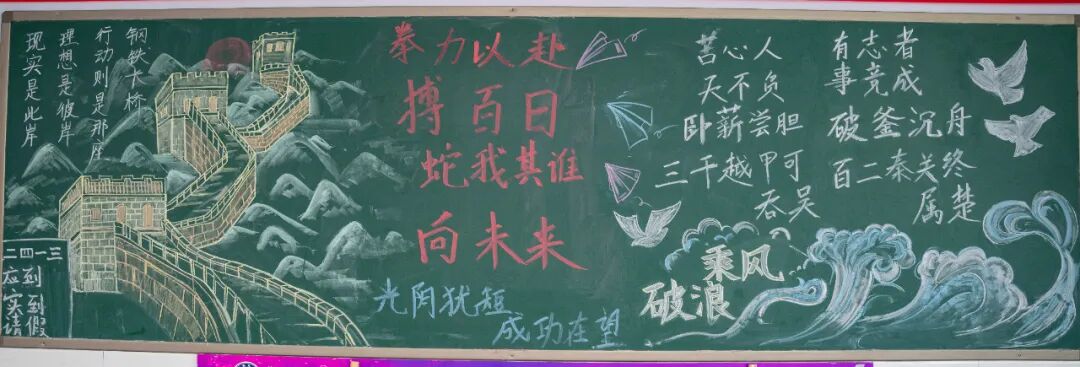 现实是此岸
理想是彼岸
行动则是那座
钢铁大桥
二四一三
应到
实到
请假
拳力以赴
搏百日
蛇我其谁
向未来
光阴犹短
成功在望
苦心人
天不负
卧薪尝胆
三千越甲可
吞吴
有志者
事竞成
破釜沉舟
百二秦关终
属楚
乘风
破浪